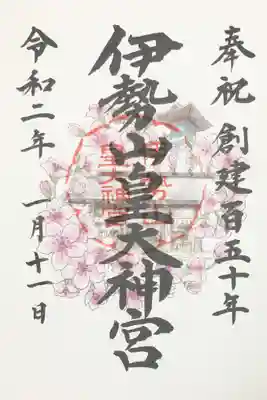 奉祝 創建百五十年
伊勢山皇大神宮
令和二年 一月十一日